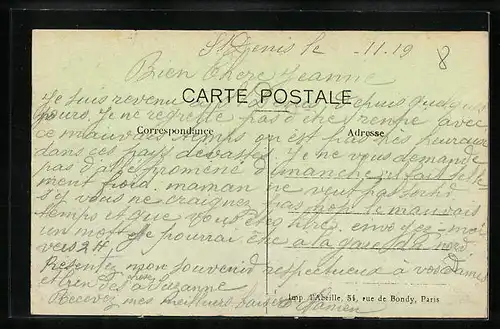 St Denis le -11-19
8
Bien Chère Jeanne
CARTE POSTALE
Je suis revenu depuis quelques
jours. Je ne regrette pas d'être rentré avec
Correspondance
Adresse
ce mauvais temps on est pas très heureuse
dans ces pays dévastés. Je ne vous demande
pas d'aller promené dimanche il fait telle
ment froid. maman ne veut pas sortir
s'y vous ne craignez pas trop le mauvais
temps et que vous êtes libre. envoyez-moi
un mot je pourrai être a la gare du nord
vers 2H
Présentez mon souvenir respectueux a vos dames
et rendez a Suzanne
Recevez mes meilleurs baisers
Imp. l'Abeille, 51, rue de Bondy, Paris